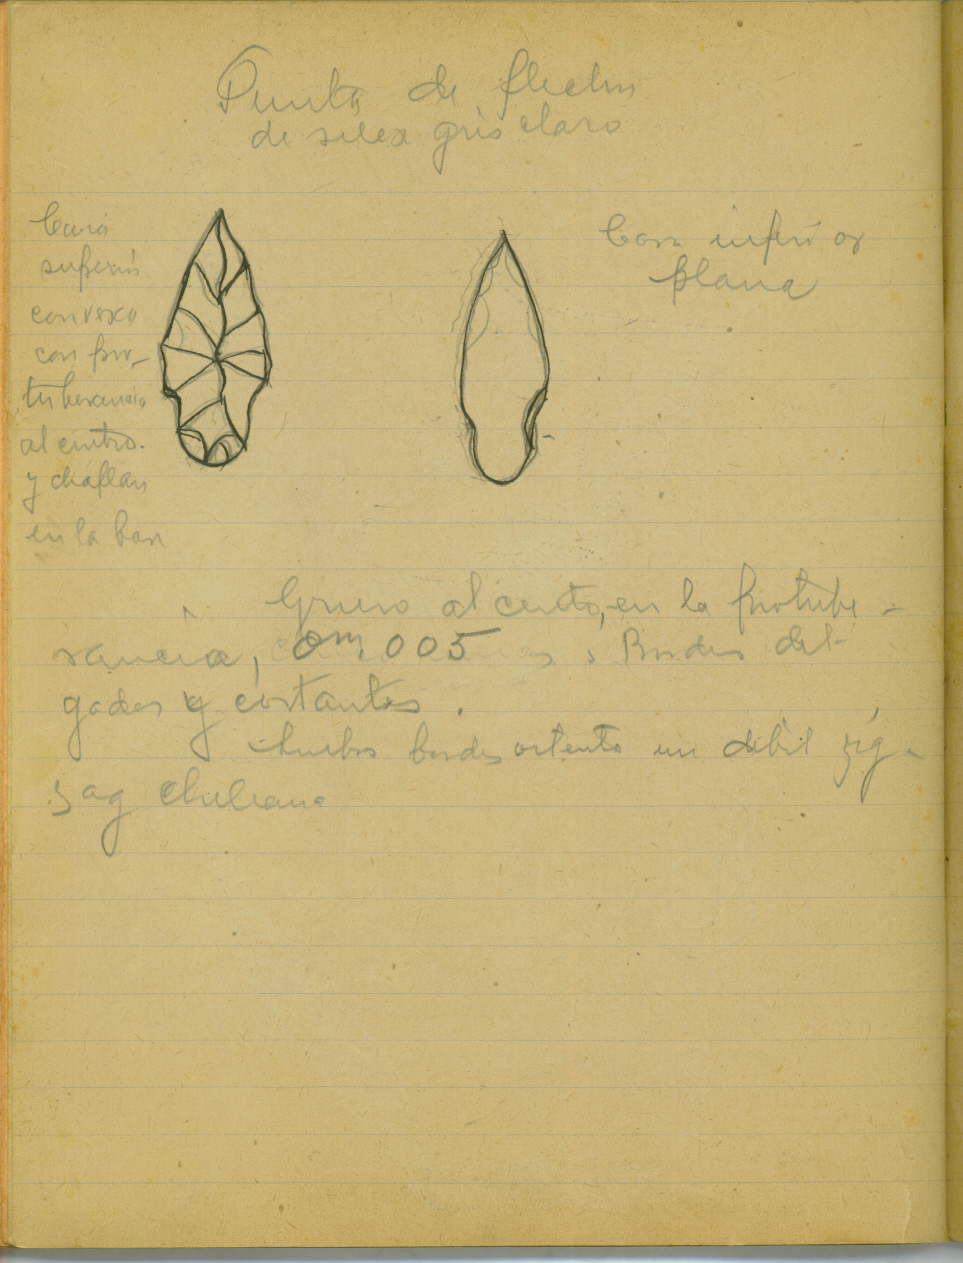 Punta de flecha
de silex gris claro
Cara
superior
convexa
con pro-
tuberancia
al centro.
y chaflan
en la base
Cara inferior
plana
Grueso al centro, en la protube-
rancia, 0m,005 Bordes del-
gados y cortantes.
Ambos bordes ostentan un débil zig-
zag